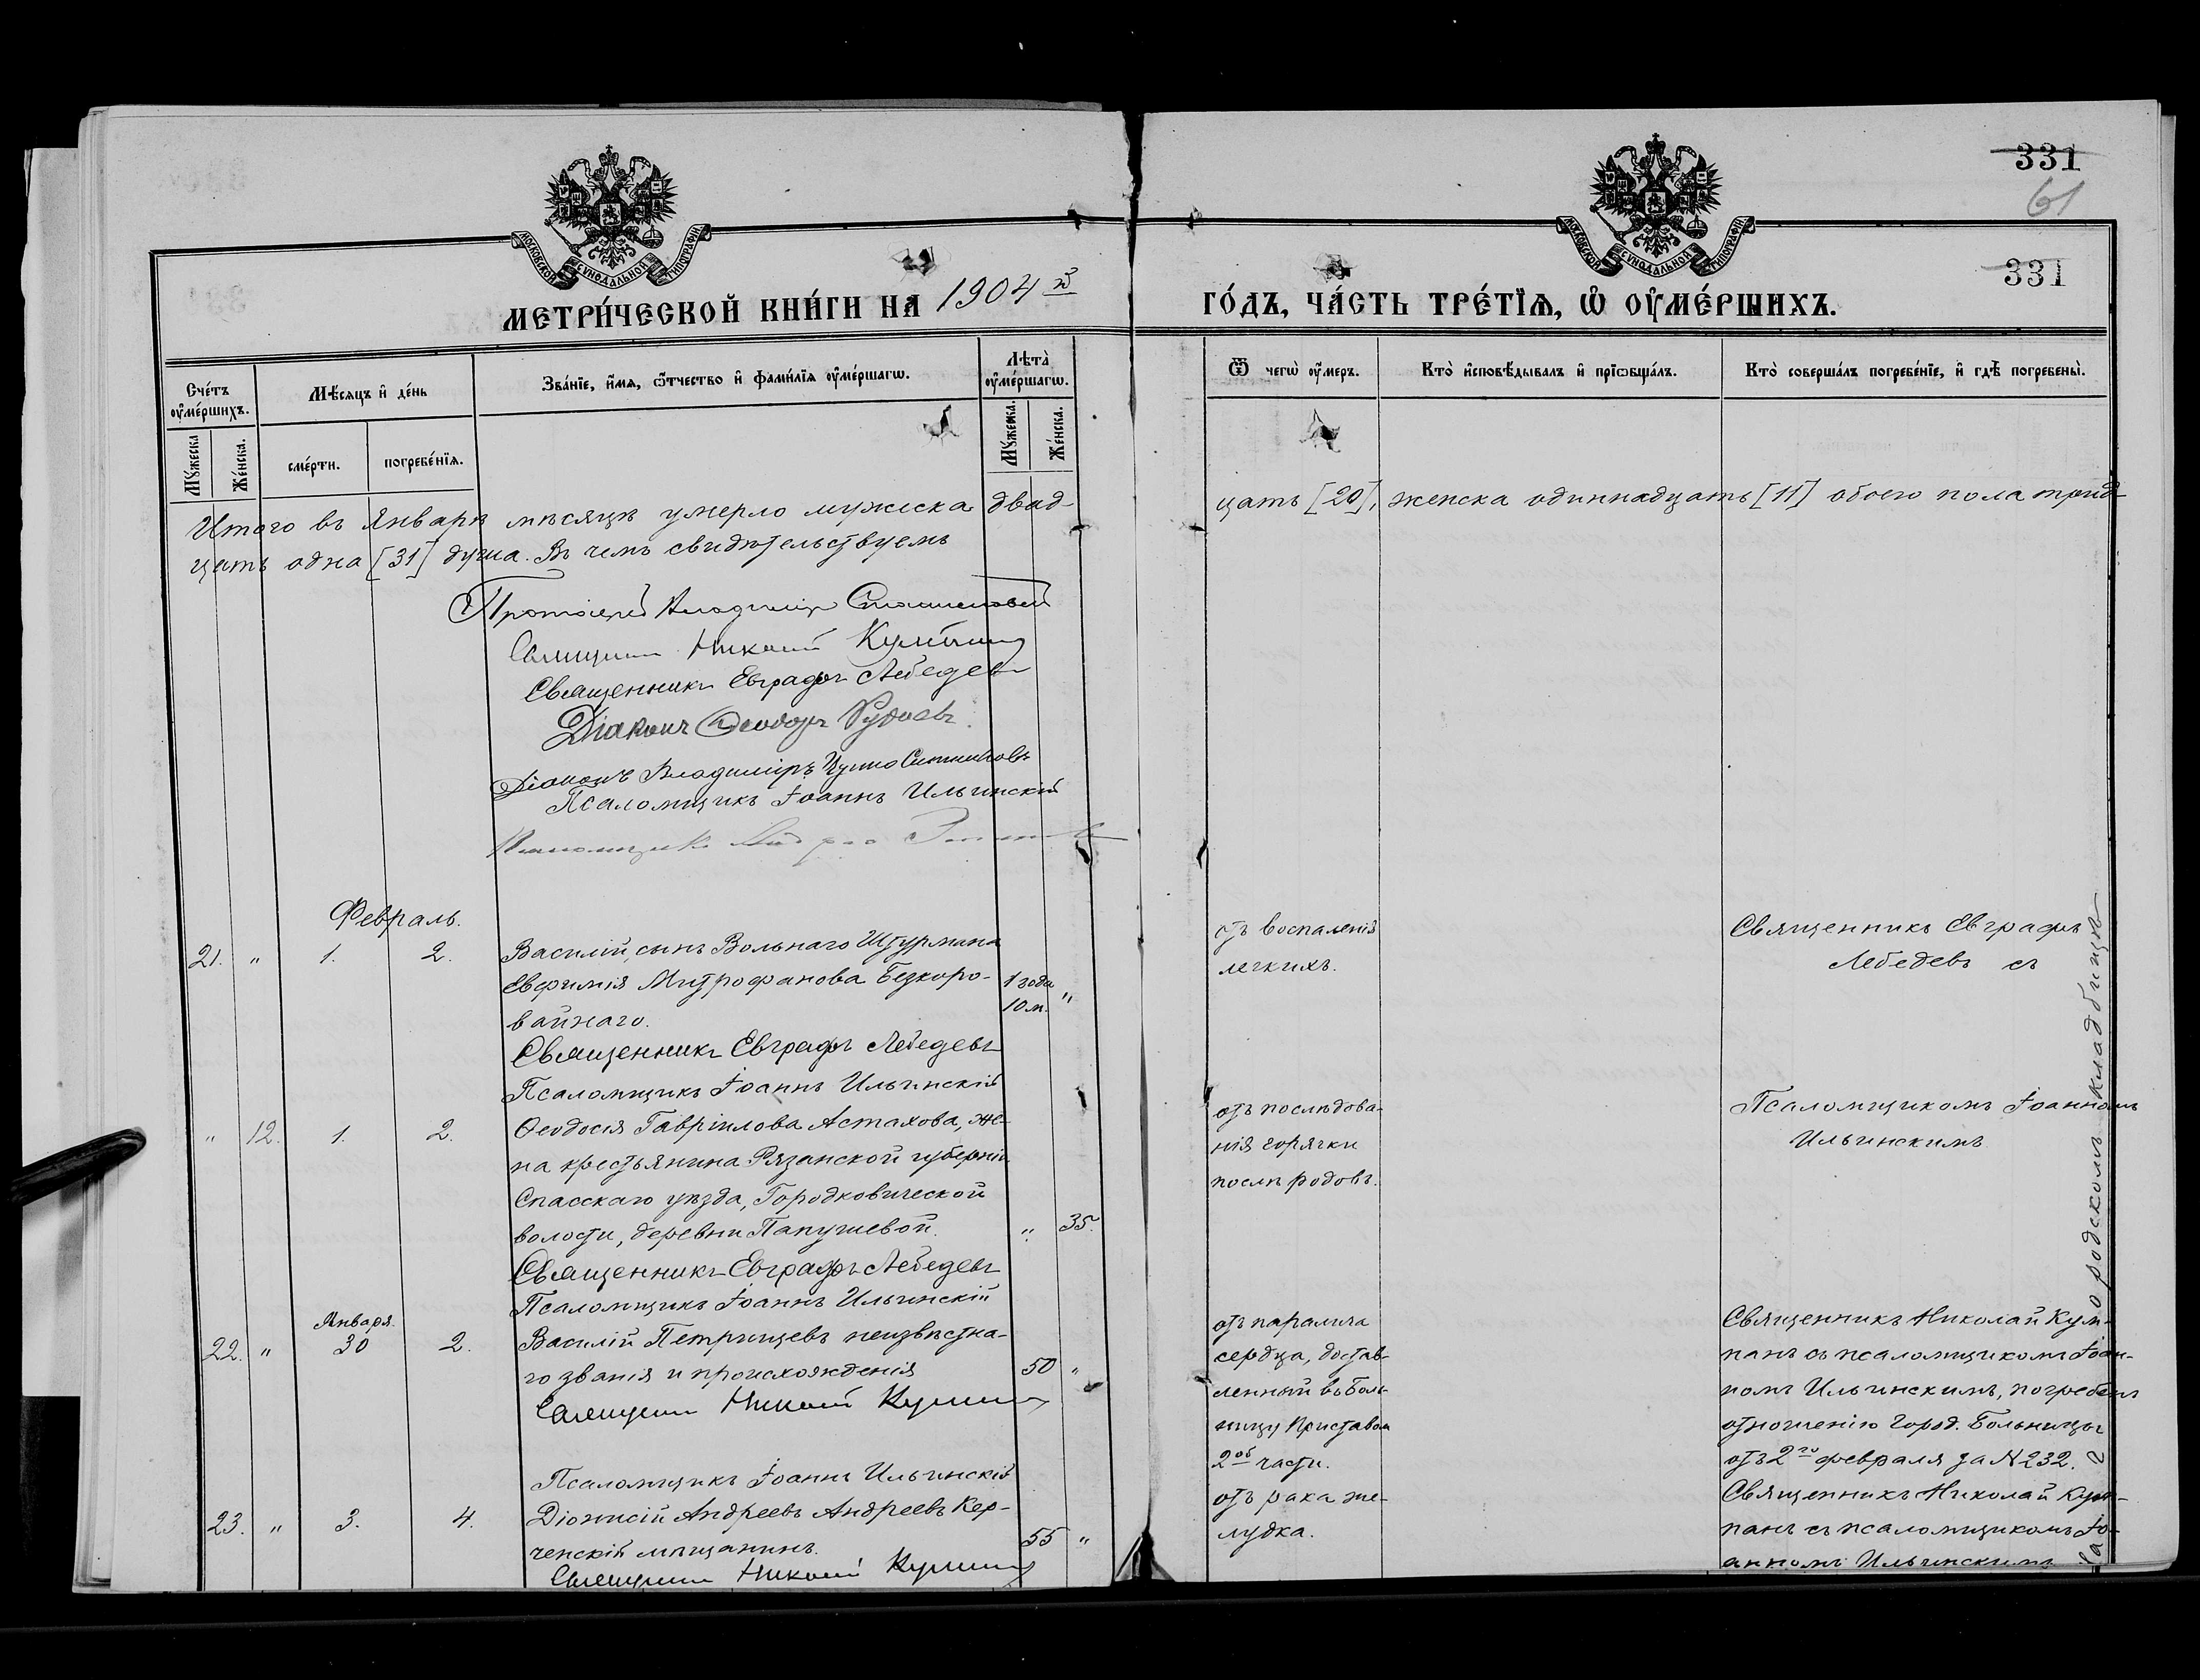 331
61
331
МОСКОВСКОЙ СУНОДАЛЬНОЙ ТИПОГРАФІИ
МОСКОВСКОЙ СУНОДАЛЬНОЙ ТИПОГРАФІИ
МЕТРИ́ЧЕСКОЙ КНИ́ГИ НА 1904й
ГО́ДЪ, ЧА́СТЬ ТРЕ́ТІѦ, Ѡ҆ ОУ҆МЕ́РШИХЪ.
Сче́тъ оу҆ме́ршихъ.
Мѣ́сяцъ и҆ де́нь
Зва́нїе, и҆́мя, ѻ҆́тчество и҆ фами́лїя оу҆ме́ршагѡ.
Лѣ́та оу҆ме́ршагѡ.
Ѿ чегѡ̀ оу҆́меръ.
Кто̀ и҆сповѣ́дывалъ и҆ прїѡбща́лъ.
Кто̀ соверша́лъ погребе́нїе, и҆ гдѣ̀ погребены̀.
Му́жеска
Же́нска.
сме́рти.
погребе́нїя.
Му́жеска.
Же́нска.
Итого въ Январѣ мѣсяцѣ умерло мужеска двад-
цать [20], женска одиннадцать [11] обоего пола трид-
цать одна [31] душа. Въ чемъ свидѣтельствуемъ
Протоіерей Владиміръ
Священникъ Николай
Священникъ Евграфъ Лебедевъ
Діаконъ Ѳеодоръ
Діаконъ Владиміръ
Псаломщикъ Іоаннъ Ильинскій
Псаломщикъ
Февраль.
21. " 1. 2.
Василій, сынъ Вольнаго Штурмана
Евфимія Митрофанова Безкоро-
вайнаго.
1 года
10 м. "
Священникъ Евграфъ Лебедевъ
Псаломщикъ Іоаннъ Ильинскій
отъ воспаленія
легкихъ.
Священникъ Евграфъ
Лебедевъ съ
" 12. 1. 2.
Ѳеодосія Гавріилова Астахова, же-
на крестьянина Рязанской губерніи
Спасскаго уѣзда, Городковической
волости, деревни Папушевой.
" 35.
Священникъ Евграфъ Лебедевъ
Псаломщикъ Іоаннъ Ильинскій
отъ послѣдова-
нія горячки
послѣ родовъ.
Псаломщикомъ Іоанномъ
Ильинскимъ
Января.
22. " 30 2.
Василій Петрищевъ неизвѣстна-
го званія и происхожденія
50 "
Священникъ Николай
Псаломщикъ Іоаннъ Ильинскій
отъ паралича
сердца, достав-
ленный въ Боль-
ницу Приставом
2ой части.
Священникъ Николай Кум-
панъ съ псаломщикомъ Іоан-
номъ Ильинскимъ, погребенъ
отношенію Город. Больницы
отъ 2го февраля за № 232.
23. " 3. 4.
Діонисій Андреевъ Андреевъ Кер-
ченскій мѣщанинъ.
55 "
Священникъ Николай
отъ рака же-
лудка.
Священникъ Николай Кум-
панъ съ псаломщикомъ Іо-
анномъ Ильинскимъ
На городскомъ кладбищѣ